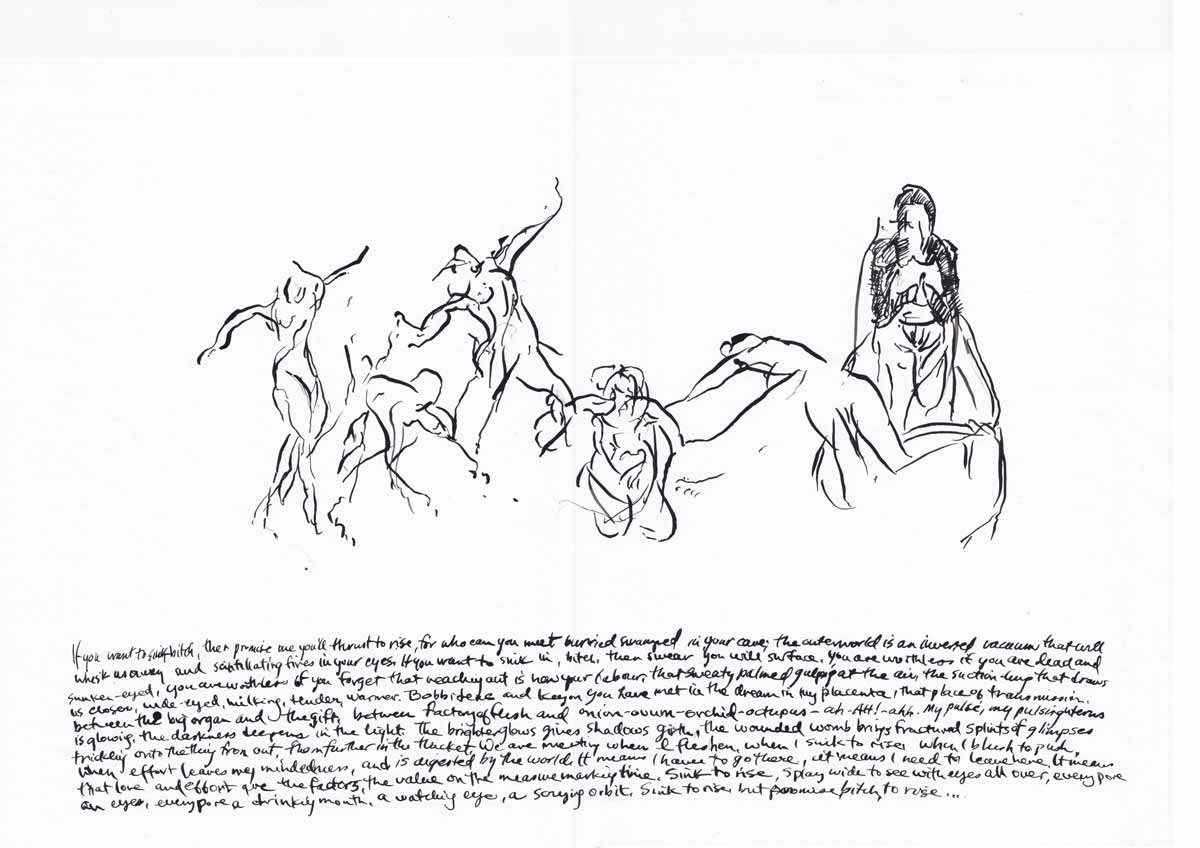 If you want to sink bitch, then promise me you'll thrust to rise, for who can you meet burried swamped in your cave; the outerworld is an inversed vacuum that will
whisk us away and scintillating fires in your eyes. If you want to sink in, bitch, then swear you will surface. You are worthless if you are dead and
sunken-eyed, you are worthless if you forget that reaching out is now your labour, that sweaty palmed gulping at the air, the suction-cup that draws
us closer, wide-eyed, milking, tender, warmer. and you have met in the dream in my placenta, that place of transmission...
between the big organ and the gift, between factory of flesh and onion-ovum-orchid-octopus-ah-AH!-ahh. My pulse, my pulsing uterus
is glowing, the darkness deepens in the light. The brighter glows gives shadows girth, the wounded womb brings fractured splints of glimpses
trickling onto the thing from out, from further in the thicket. We are meeting when I fleshen, when I sink to rise, when I blush to push,
when effort leaves my mindedness, and is digested by the world. It means I have to go there, it means I need to leave here. It means
that love and effort are the factors, the value on the measure marking time. Sink to rise, splay wide to see with eyes all over, every pore
an eye, every pore a drinking mouth, a watching eye, a scrying orbit. Sink to rise but promise bitch, to rise...